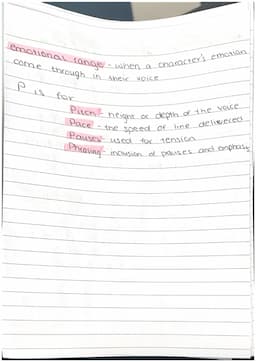 emotional range - when a character's emotion
come through in their voice
P is for
Pitch - height or depth of the voice
Pace - the speed of line delivered
Pauses - used for tension
Phrasing - inclusion of pauses and emphasis